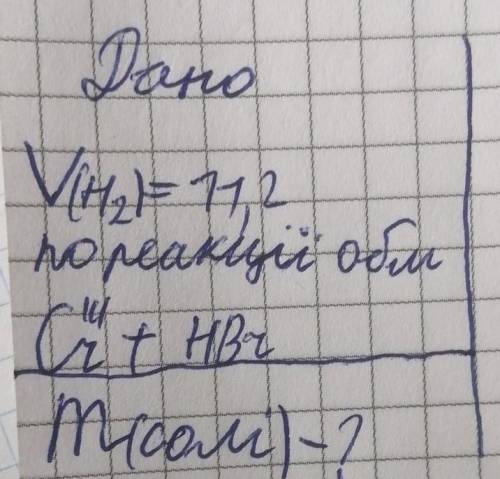 Дано
V(H₂) = 11,2
по реакції обм
Cr^III + HBr
m(солі) - ?